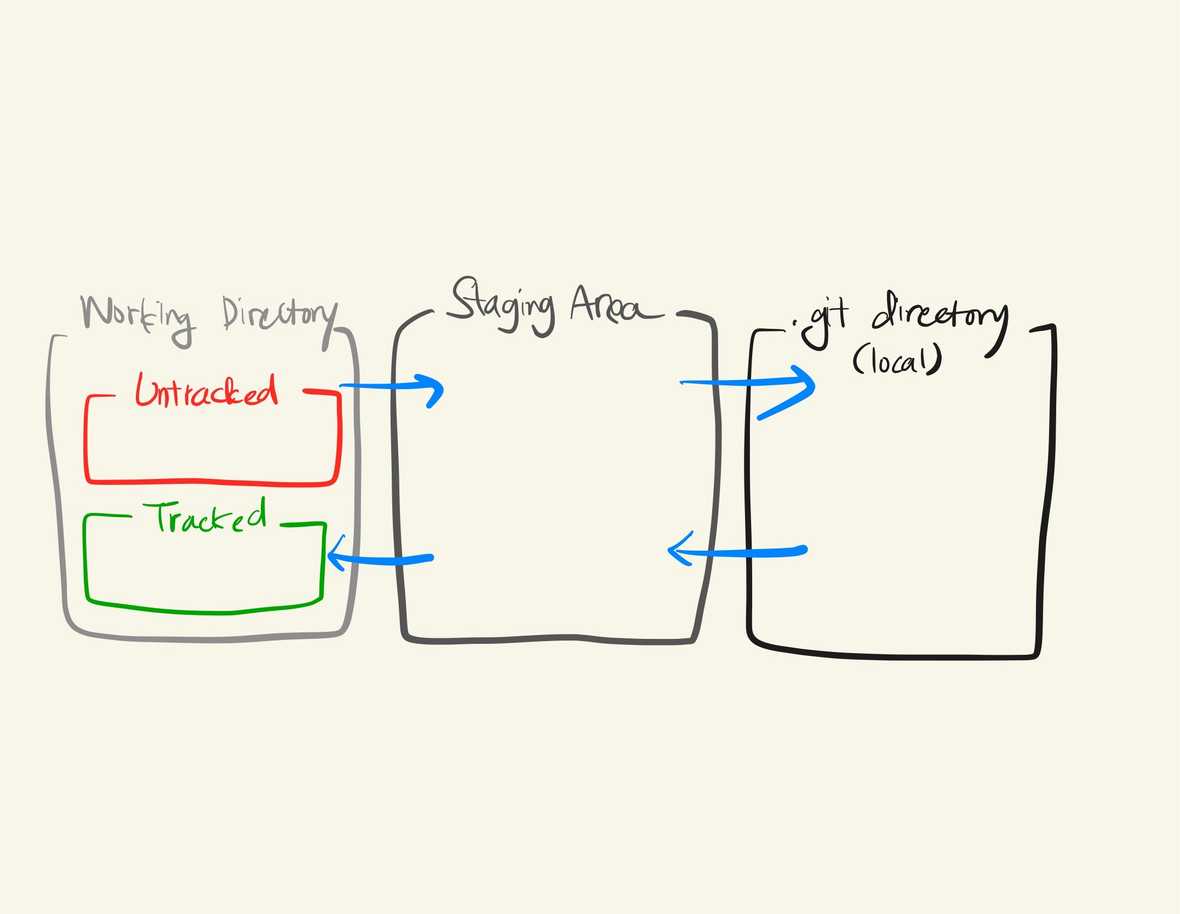 Working Directory
Untracked
Tracked
Staging Area
.git directory
(local)